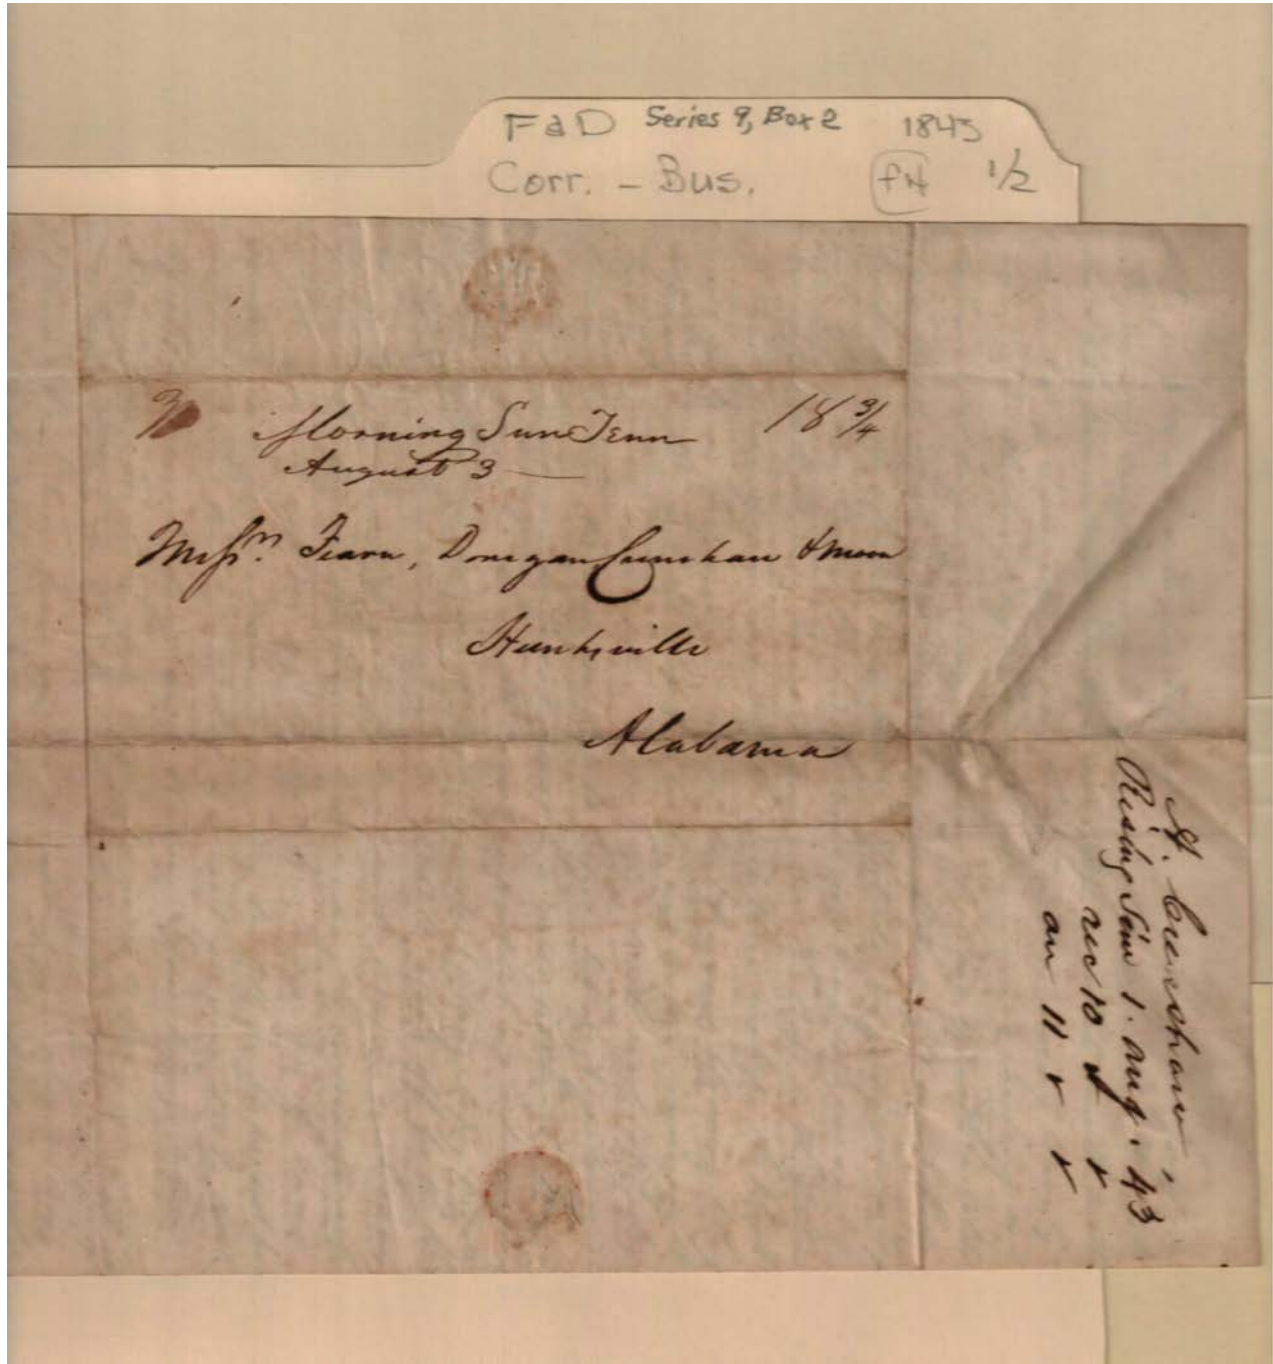 F&D Series 9, Box 2 1843
Corr. - Bus. 1/2
Morning Sun Tenn 18 3/4
August 3
Messrs. Fearn, Donegan Crenshaw &
Huntsville
Alabama
A. Crenshaw
Rising Sun 1. Aug. '43
rec 10
an 11